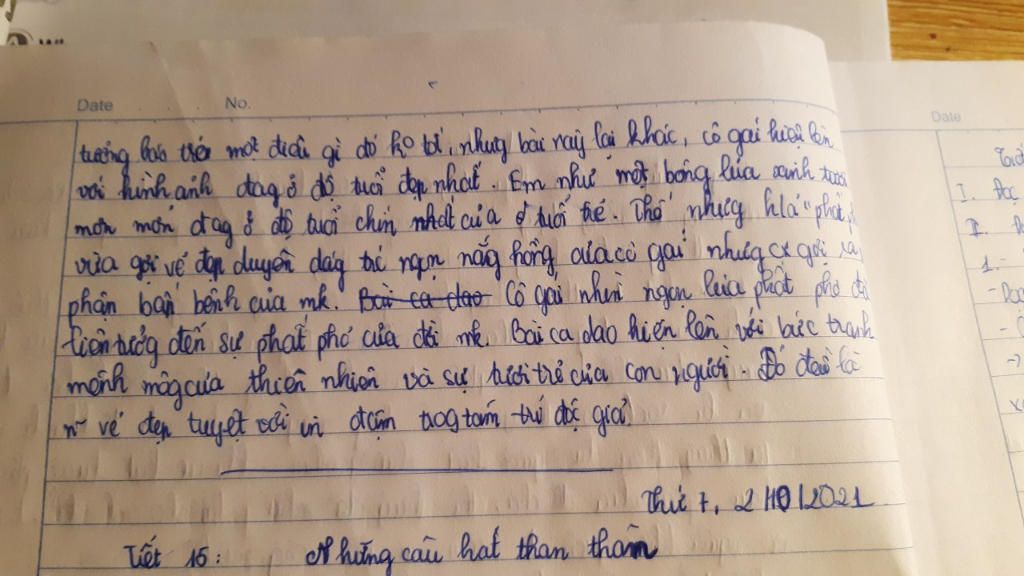 Date No.
Date
tượng báo trước một điều gì đó ko tốt, nhưng bài này lại khác, cô gái hiện lên
với hình ảnh đag ở độ tuổi đẹp nhất. Em như một bông lúa xanh tươi
mơn mởn đag ở độ tuổi chín nhất của tuổi trẻ. Thế nhưng h/a "phất
vừa gợi vẻ đẹp duyên dáng trẻ ngọn nắng hồng của cô gái nhưng cx gợi ra
phận bấp bênh của mk. Bài ca dao Cô gái nhìn ngọn lúa phất phơ
liên tưởng đến sự phất phơ của đời mk. Bài ca dao hiện lên với bức tranh
mênh mông của thiên nhiên và sự tươi trẻ của con người. Đó đều là
n~ vẻ đẹp tuyệt vời in đậm trog tâm trí độc giả.
Thứ 7, 2/10/2021
Tiết 15: Những câu hát than thân
I.
II.
1.